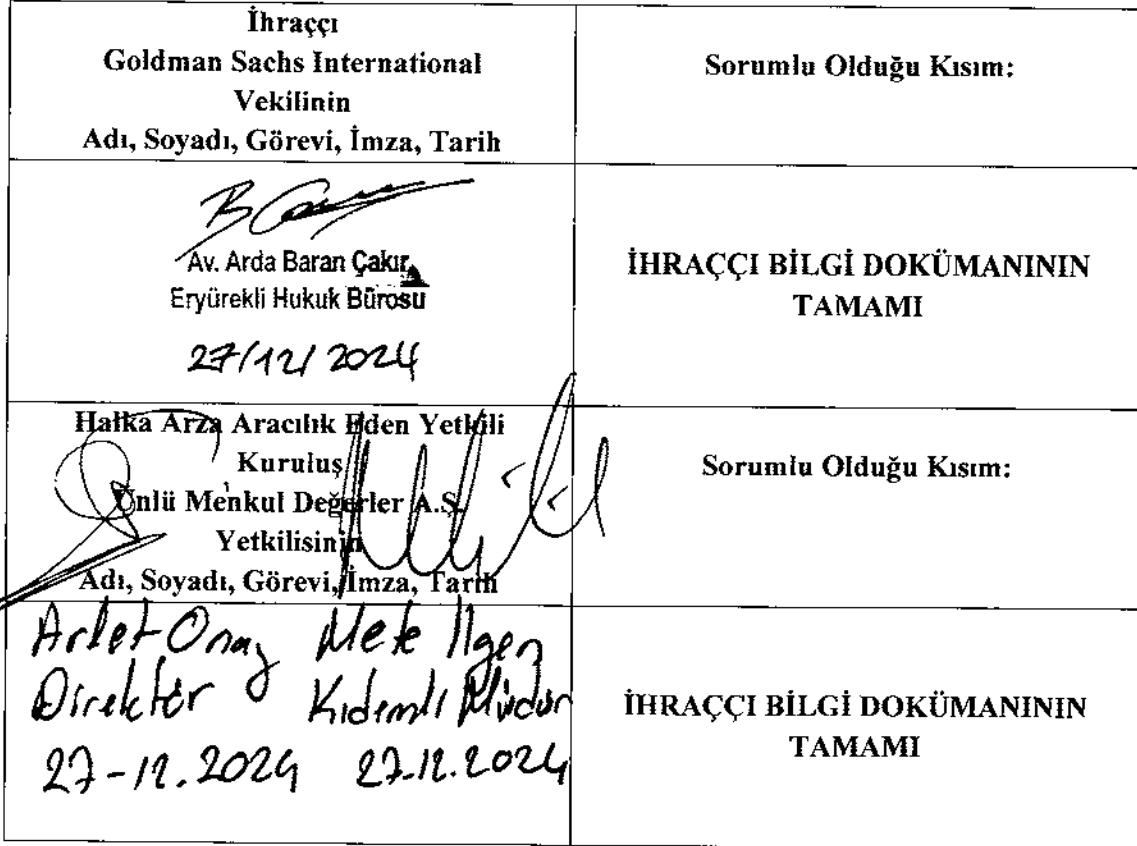 İhraççı
Goldman Sachs International
Vekilinin
Adı, Soyadı, Görevi, İmza, Tarih
Sorumlu Olduğu Kısım:
Av. Arda Baran Çakır
Eryürekli Hukuk Bürosu
27/12/2024
İHRAÇÇI BİLGİ DOKÜMANININ
TAMAMI
Halka Arza Aracılık Eden Yetkili
Kuruluş
Ünlü Menkul Değerler A.Ş.
Yetkilisinin
Adı, Soyadı, Görevi, İmza, Tarih
Sorumlu Olduğu Kısım:
Arlet Onay Mete Ilgen
Direktör Kıdemli Müdür
27-12.2024 27.12.2024
İHRAÇÇI BİLGİ DOKÜMANININ
TAMAMI